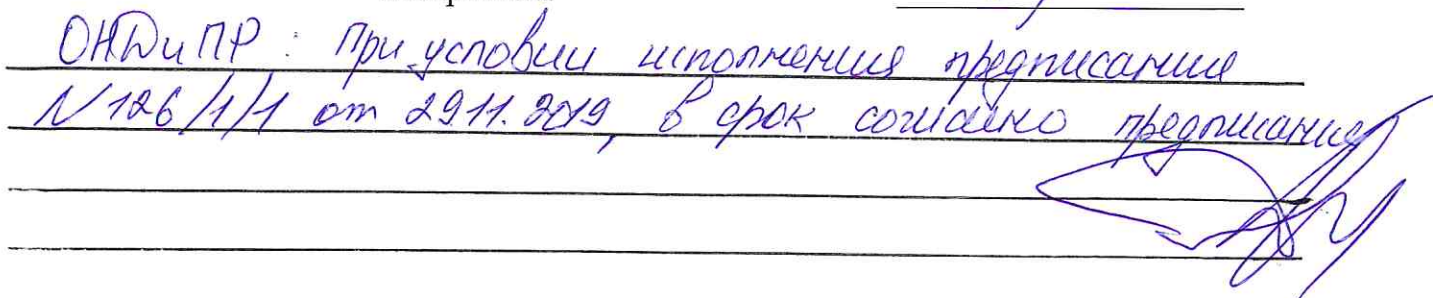 ОНДиПР: При условии исполнения предписания
N 126/1/1 от 29.11.2019, в срок согласно предписания